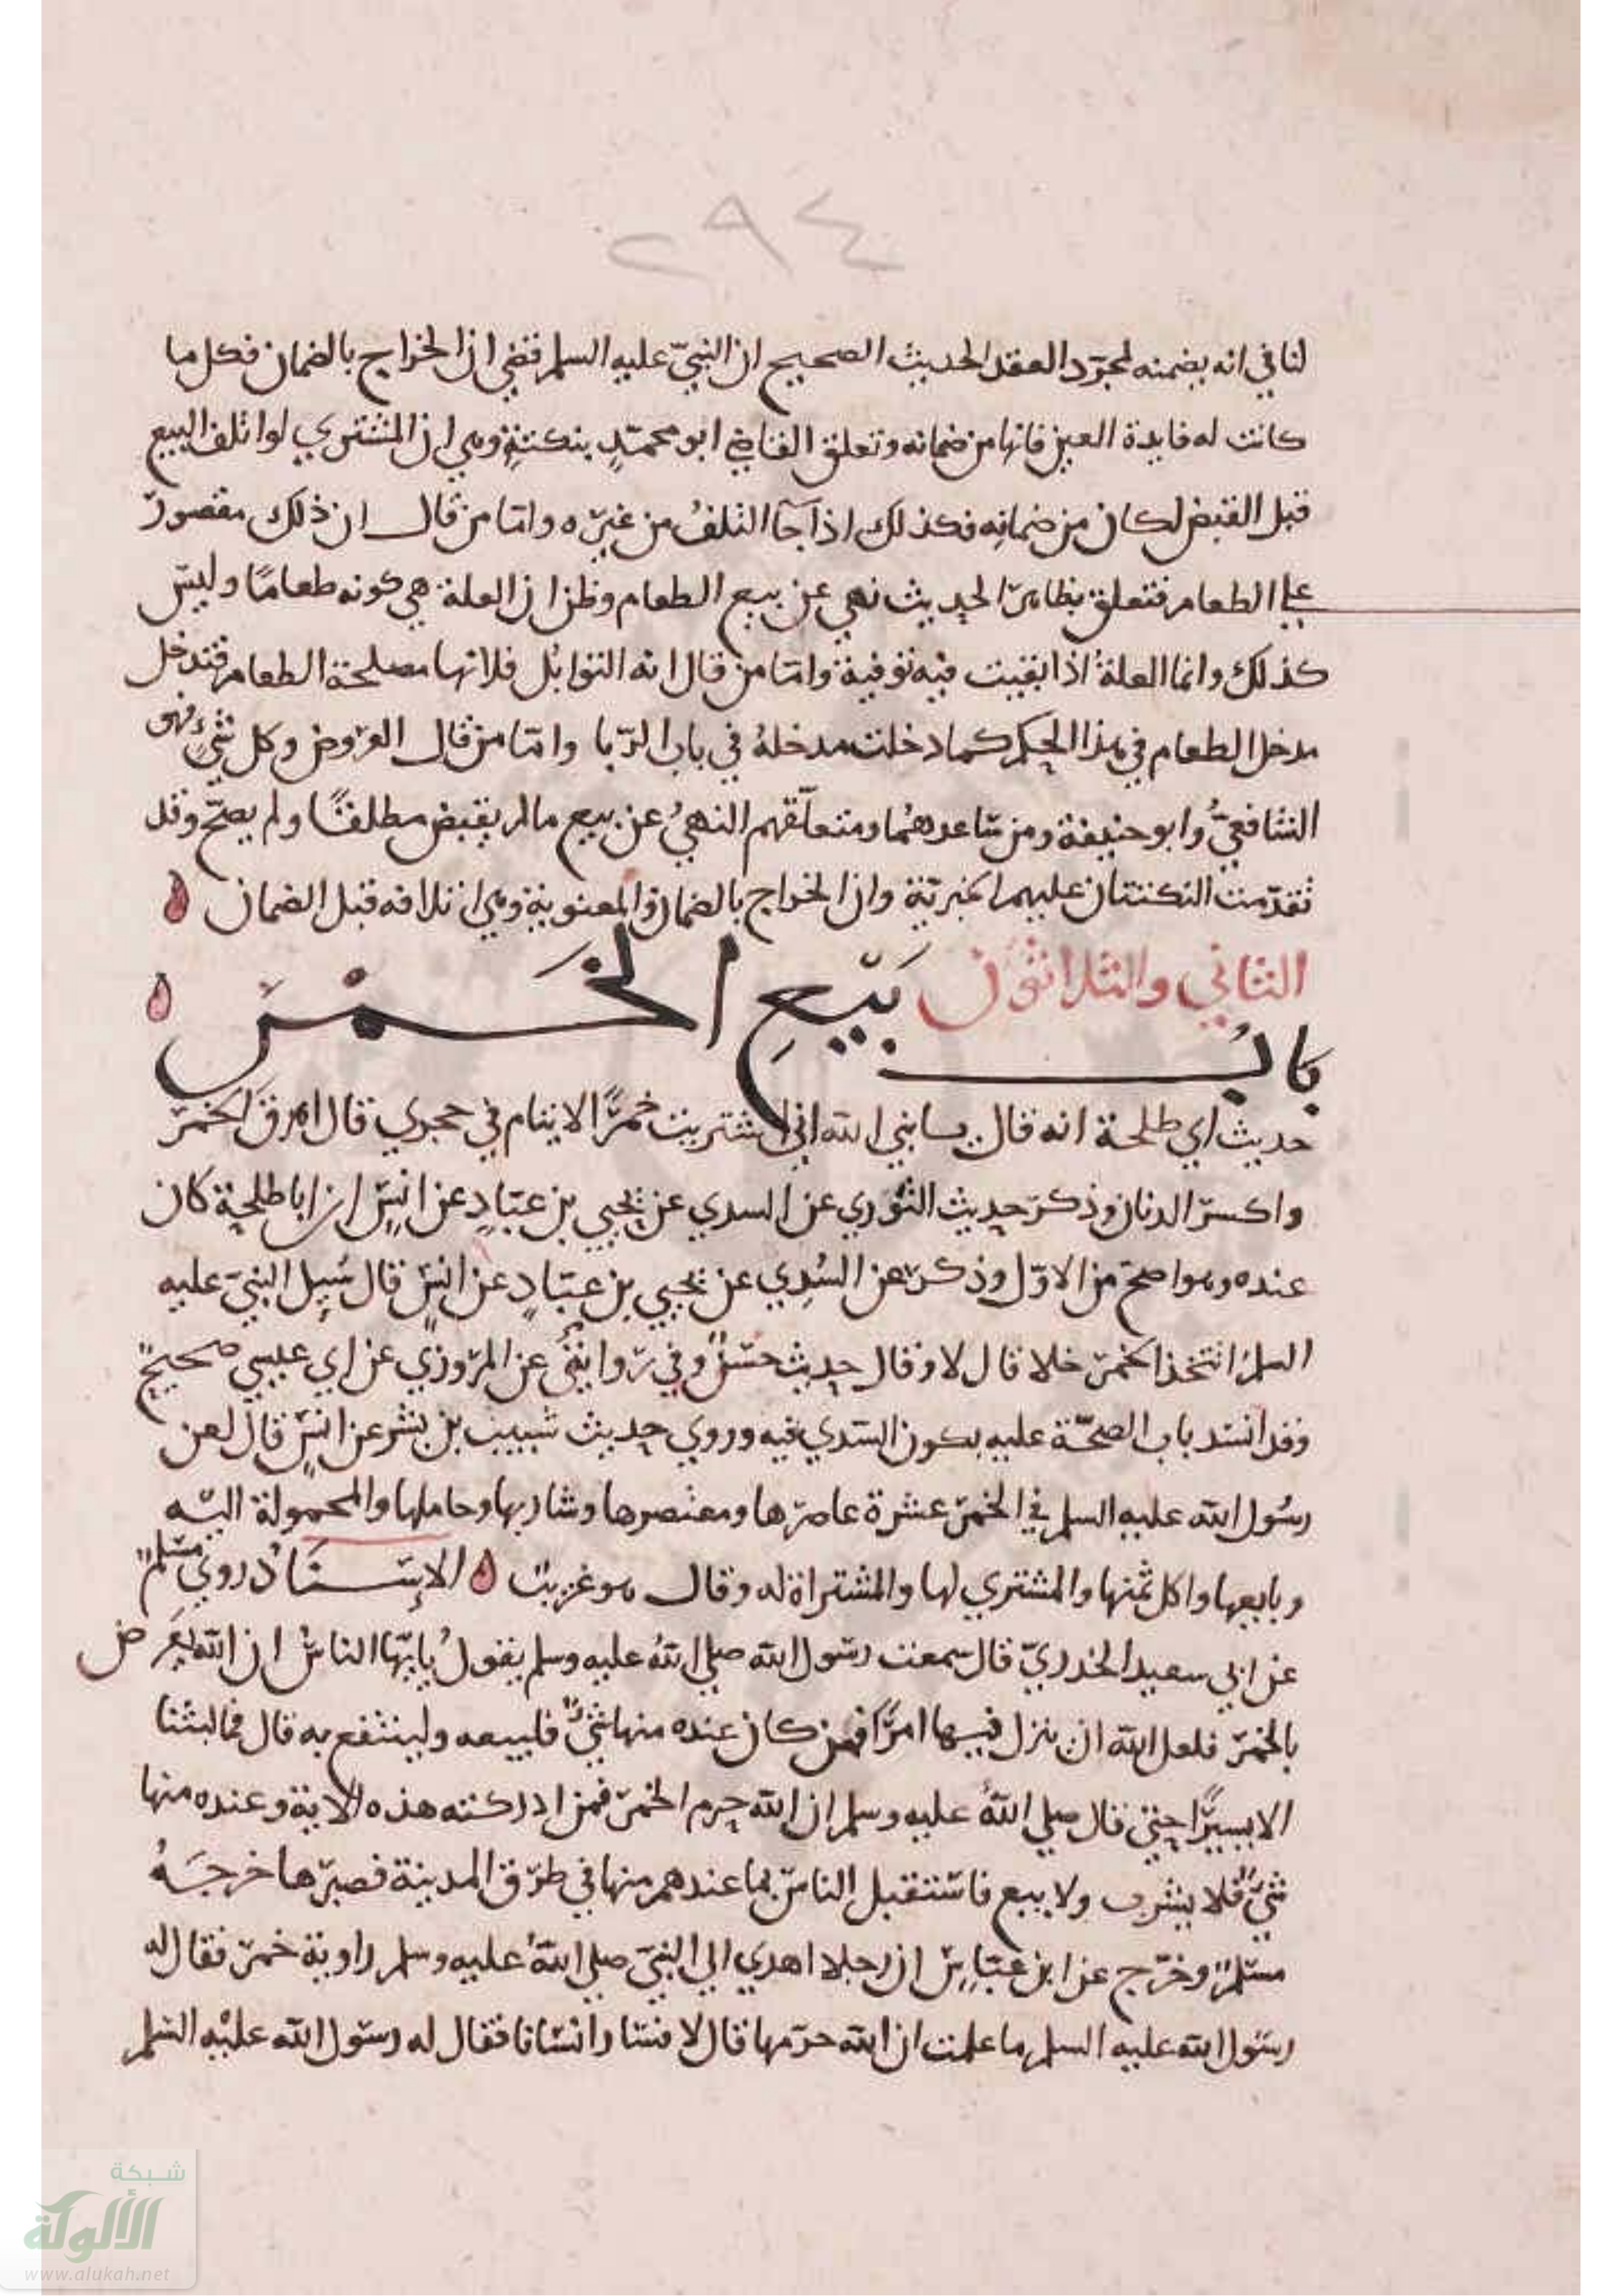 ٢٩٤
لنا في انه يضمنه لمجرّد العقد الحديث الصحيح ان النبيّ عليه السلم قضي ان الخراج بالضمان فكل ما
كانت له فايدة العين فانها من ضمانه وتعلق القاضي ابو محمدٍ بنكتةٍ وهي ان المشتري لو اتلف البيع
قبل القبض لكان من ضمانِه فكذلك اذا جآ التلفُ من غيره وامّا من قال ان ذلك مقصورٌ
علي الطعام فتعلق بظاهر الحديث نهي عن بيع الطعام وظن ان العلة هي كونه طعامًا وليس
كذلك وانما العلةُ اذا بقيت فيه توفية وامّا من قال انه التوابل فلانها مصلحة الطعام فتدخل
مدخل الطعام في هذا الحكم كما دخلت مدخلهُ في باب الربا وامّا من قال العروض وكل شيءٍ فهو
الشافعيُّ وابو حنيفة ومن ساعدهُما ومتعلّقهم النهيُ عن بيع ما لم يقبض مطلقًا ولم يصحّ وقد
تقدّمت النكتتان عليهم الخبريّة وان الخراج بالضمان والمعنوية وهي اتلافه قبل الضمان
الثاني والثلاثون
بابُ بَيْعِ الخَمْرِ
حديث ابي طلحة انه قال يا نبي الله اني اشتريت خمرًا لايتام في حجري قال اهرق الخمر
واكسر الدنان وذكر حديث الثوري عن السدي عن يحيي بن عبّادٍ عن انسٍ ان ابا طلحة كان
عنده وهو اصح من الاوّل وذكر عن السُدِي عن يحيي بن عبّادٍ عن انسٍ قال سُيِل النبيّ عليه
السلم اتتخذ الخمر خلا قال لا وقال حديث حسنٌ وفي روايتي عن المروزي عن ابي عيسي صحيحٌ
وقد انسد باب الصحّة عليه بكون السّدي فيه وروي حديث شبيب بن بشر عن انسٍ قال لعن
رسُول الله عليه السلم في الخمر عشرة عاصرها ومعتصرها وشاربها وحاملها والمحمولة اليه
وبايعها واكل ثمنها والمشتري لها والمشتراة له وقال هو غريبٌ الإسنَادُ روي مسلمٌ
عن ابي سعيد الخدريّ قال سمعت رسول الله صلي اللهُ عليه وسلم يقولُ يايّها الناسُ ان الله يعَرض
بالخمر فلعل الله ان ينزل فيها امرًا فمن كان عنده منها شيءٌ فليبعه ولينتفع به قال فما لبثنا
الا يسيرًا حتي قال صلي اللهُ عليه وسلم ان الله حرم الخمر فمن ادركته هذه الاية وعنده منها
شيءٌ فلا يشرب ولا يبع فاستقبل الناس بما عندهم منها في طرق المدينة فصبرها خرجَهُ
مسلمٌ وخرّج عن ابن عبّاسٍ ان رجلا اهدي الي النبيّ صلي اللهُ عليه وسلم راوية خمر فقال له
رسول الله عليه السلم ما علمت ان الله حرّمها قال لا فسار انسانا فقال له رسول الله عليه السلم
شبكة
الألوكة
www.alukah.net